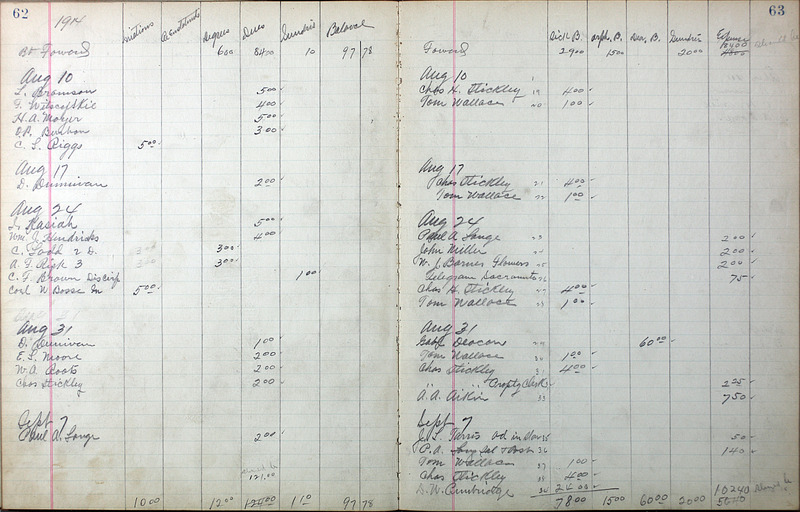 62
1914
Initions
Degrees
Dues
Sundris
Balance
Bt Foward 600 8400 10 97 78
Aug 10
L. Bronson 500
400
H. A. Moyer 500
300
C. L. Riggs 500
Aug 17
D. Dunnivan 200
Aug 24
L. Kasiah 500
Wm. J. Hendricks 400
C. Todd 2 D. 300
A. F. Risk 3 300
C. F. Brown Discip 100
Carl W Bosse In 500
Aug 31
D. Dunnivan 100
E. L. Moore 200
W. A. Coots 200
Chas Stickley 200
Sept 7
Paul A. Lange 200
121.00
1000 1200 12400 110 97 78
63
Sick B. Orph. B. Sundris Expence
Foward 2900 1500 2000
Aug 10
Chas H. Stickley 19 400
Tom Wallace 20 100
Aug 17
Chas Stickley 21 400
Tom Wallace 22 100
Aug 24
Paul A Lange 23 200
John Miller 24 200
W. J. Barnes Flowers 25 200
Telegram Sacramento 26 75
Chas H. Stickley 27 400
Tom Wallace 28 100
Aug 31
Deacon 29 6000
Tom Wallace 30 100
Chas Stickley 31 400
225
A. A. Aikin 33 750
Sept 7
J. L. Farris 35 50
P. A. 36 140
Tom Wallace 37 100
Chas Stickley 38 400
D. W. 34 2400
10240
7800 1500 6000 2000